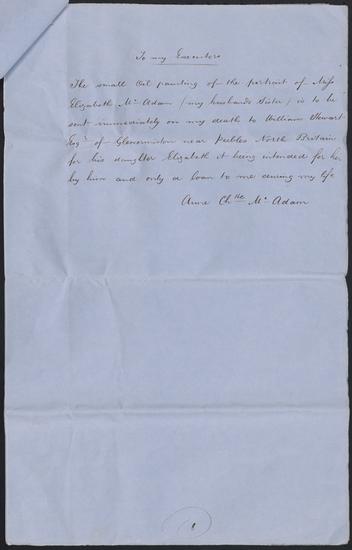 To my Executors
The small Oil painting of the portrait of Miss
Elizabeth Mc Adam (my husbands Sister) is to be
sent immediately on my death to William Stewart
Esqr of Glenormiston near Peebles North Britain
for his daughter Elizabeth it being intended for her
by him and only a loan to me during my life
Anne Chtte Mc Adam